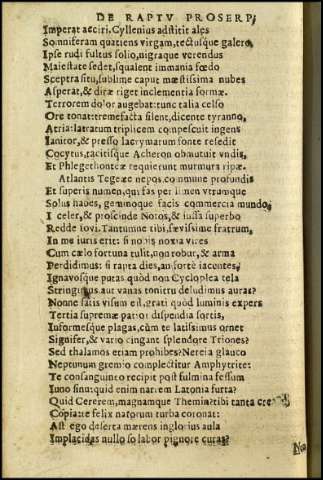 DE RAPTV PROSERP.
Imperat acciri. Cyllenius adstitit ales
Somniferam quatiens virgam, tectusque galero,
Ipse rudi fultus solio, nigraque verendus
Maiestate sedet, squalent immania fœdo
Sceptra situ, sublime caput mœstissima nubes
Asperat, & diræ riget inclementia formæ.
Terrorem dolor augebat: tunc talia celso
Ore tonat: tremefacta silent, dicente tyranno,
Atria: latratum triplicem compescuit ingens
Ianitor, & presso lacrymarum fonte resedit
Cocytus, tacitisque Acheron obmutuit vndis,
Et Phlegethonteæ requierunt murmura ripæ.
Atlantis Tegeæe nepos, commune profundis
Et superis numen, qui fas per limen vtrumque
Solus habes, geminoque facis commercia mundo,
I celer, & proscinde Notos, & iussa superbo
Redde Iovi. Tantumne tibi, sævissime fratrum,
In me iuris erit: si nobis noxia vires
Cum cælo fortuna tulit, non robur, & arma
Perdidimus: si rapta dies, an forte iacentes,
Ignavosque putas quòd non Cyclopea tela
Stringimus, aut vanas tonitru deludimus auras?
Nonne satis visum est, grati quòd luminis expers
Tertia supremæ patior dispendia sortis,
Informesque plagas, cùm te latissimus ornet
Signifer, & vario cingant splendore Triones?
Sed thalamos etiam prohibes? Nereia glauco
Neptunum gremio complectitur Amphytrite:
Te consanguineo recipit post fulmina fessum
Iuno sinu: quid enim narrem Latonia furta?
Quid Cererem, magnamque Themin? tibi tanta cre-
Copia: te felix natorum turba coronat:
Ast ego deserta mœrens inglorius aula
Implacidas nullo solabor pignore curas?
Non